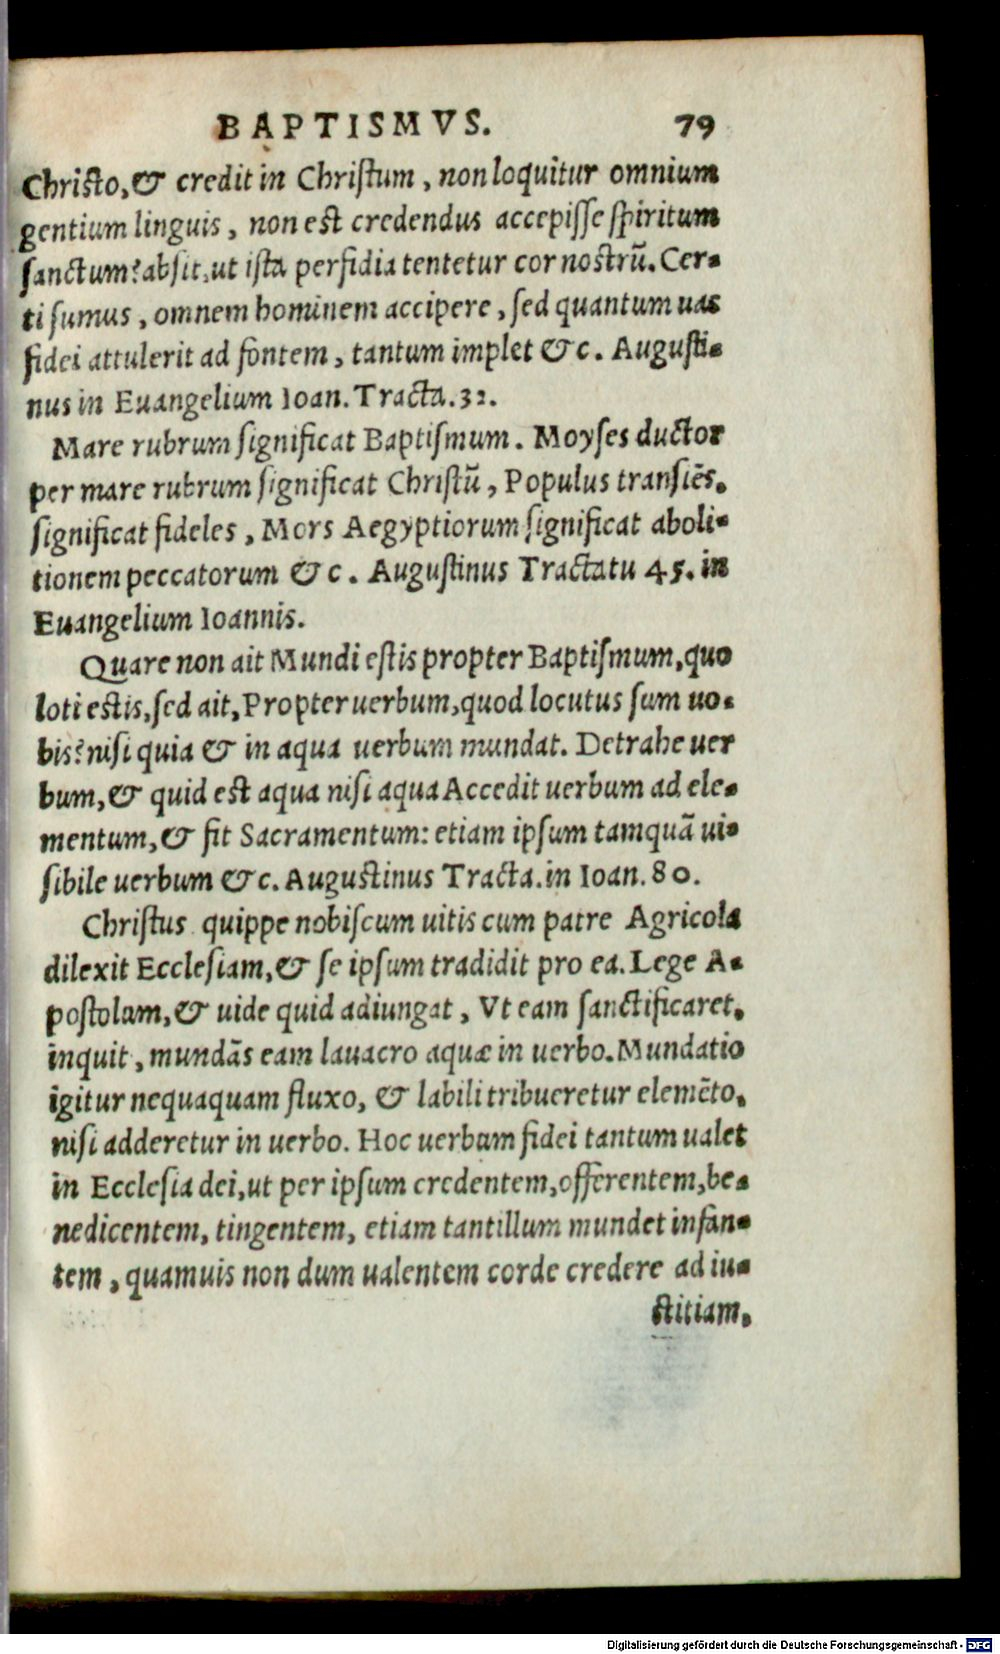 BAPTISMVS. 79
Christo, & credit in Christum, non loquitur omnium
gentium linguis, non est credendus accepisse spiritum
sanctum? absit, ut ista perfidia tentetur cor nostrũ. Cer-
ti sumus, omnem hominem accipere, sed quantum uas
fidei attulerit ad fontem, tantum implet &c. Augusti-
nus in Euangelium Ioan. Tracta. 32.
Mare rubrum significat Baptismum. Moyses ductor
per mare rubrum significat Christũ, Populus transiẽs.
significat fideles, Mors Aegyptiorum significat aboli-
tionem peccatorum &c. Augustinus Tractatu 45. in
Euangelium Ioannis.
Quare non ait Mundi estis propter Baptismum, quo
loti estis, sed ait, Propter uerbum, quod locutus sum uo-
bis? nisi quia & in aqua uerbum mundat. Detrahe uer
bum, & quid est aqua nisi aqua Accedit uerbum ad ele-
mentum, & fit Sacramentum: etiam ipsum tamquã ui-
sibile uerbum &c. Augustinus Tracta. in Ioan. 80.
Christus quippe nobiscum uitis cum patre Agricola
dilexit Ecclesiam, & se ipsum tradidit pro ea. Lege A-
postolum, & uide quid adiungat, Vt eam sanctificaret,
inquit, mundãs eam lauacro aquæ in uerbo. Mundatio
igitur nequaquam fluxo, & labili tribueretur elemẽto,
nisi adderetur in uerbo. Hoc uerbum fidei tantum ualet
in Ecclesia dei, ut per ipsum credentem, offerentem, be-
nedicentem, tingentem, etiam tantillum mundet infan-
tem, quamuis non dum ualentem corde credere ad iu-
stitiam.
Digitalisierung gefördert durch die Deutsche Forschungsgemeinschaft - DFG